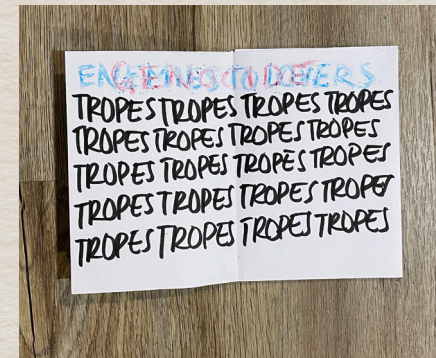 ENEMIES TO LOVERS
TROPES TROPES TROPES TROPES
TROPES TROPES TROPES TROPES
TROPES TROPES TROPES TROPES
TROPES TROPES TROPES TROPES
TROPES TROPES TROPES TROPES